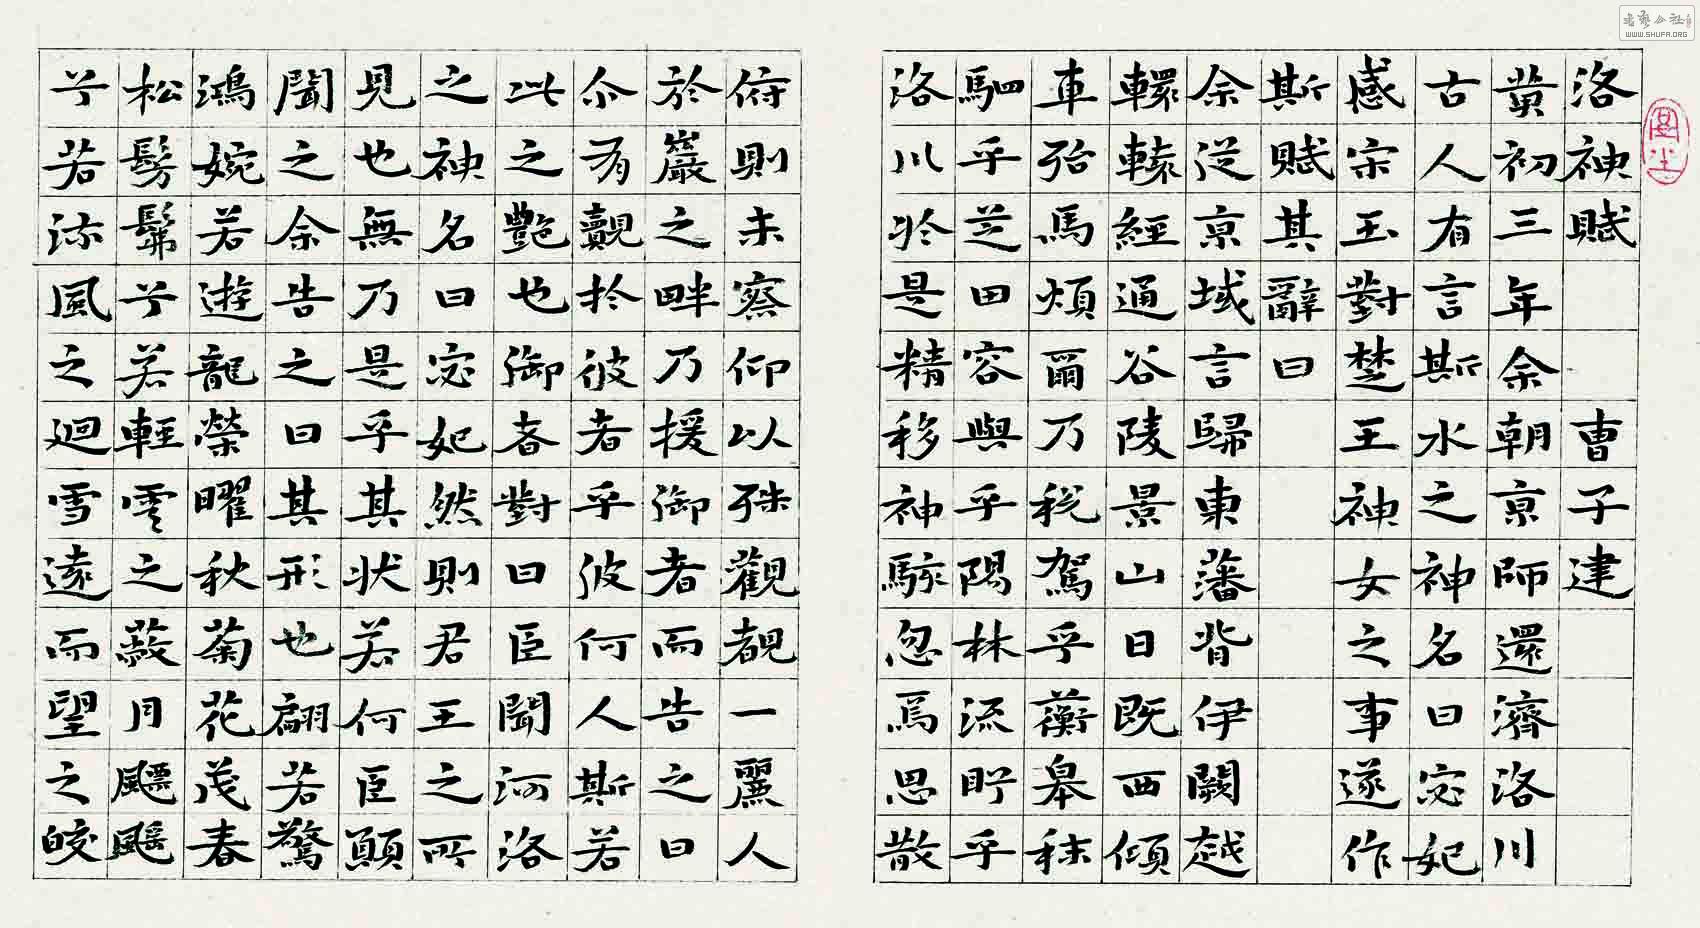 洛神賦 曹子建
黃初三年余朝京師還濟洛川
古人有言斯水之神名曰宓妃
感宋玉對楚王神女之事遂作
斯賦其辭曰
余從京域言歸東藩背伊闕越
轘轅經通谷陵景山日既西傾
車殆馬煩爾乃稅駕乎蘅皋秣
駟乎芝田容與乎陽林流眄乎
洛川於是精移神駭忽焉思散
俯則未察仰以殊觀覩一麗人
於巖之畔乃援御者而告之曰
尒有覿於彼者乎彼何人斯若
此之艷也御者對曰臣聞河洛
之神名曰宓妃然則君王之所
見也無乃是乎其狀若何臣願
聞之余告之曰其形也翩若驚
鴻婉若遊龍榮曜秋菊花茂春
松髣髴兮若輕雲之蔽月飄颻
兮若流風之迴雪遠而望之皎
WWW.SHUFA.ORG